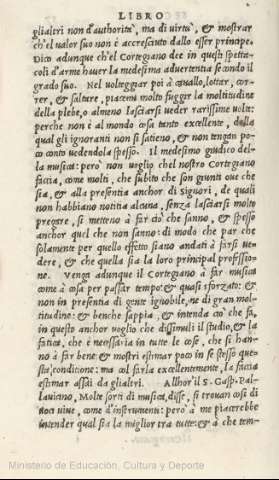 LIBRO
glialtri non d'authorità, ma di virtù, & mostrar
ch'el ualor suo non è accresciuto dallo esser principe.
Dico adunque ch'el Cortegiano dee in questi spetta-
coli d'arme hauer la medesima aduertentia secondo il
grado suo. Nel uolteggiar poi à cauallo, lottar, cor-
rer, & saltare, piacemi molto fuggir la moltitudine
della plebe, o almeno lasciarsi ueder rarissime uolte:
perche non è al mondo cosa tanto excellente, della
qual gli ignoranti non si satieno, & non tengan po-
co conto uedendola spesso. Il medesimo giudico del-
la musica: però non uoglio chel nostro Cortegiano
faccia, come molti, che subito che son giunti oue che
sia, & alla presentia anchor di Signori, de quali
non habbiano notitia alcuna, senza lasciarsi molto
pregare, si metteno à far ciò che sanno, & spesso
anchor quel che non sanno: di modo che par che
solamente per quello effetto siano andati à farsi ue-
dere, & che quella sia la loro principal professio-
ne. Venga adunque il Cortegiano à far musica
come à cosa per passar tempo: & quasi sforzato: &
non in presentia di gente ignobile, ne di gran mol-
titudine: & benche sappia, & intenda ciò che fa,
in questo anchor uoglio che dissimuli il studio, & la
fatica, che è necessaria in tutte le cose, che si han-
no à far bene: & mostri estimar poco in se stesso que-
sta conditione: ma col farla excellentemente, la faccia
estimar assai da glialtri. Allhor'il S. Gasp. Pal-
lauicino, Molte sorti di musica, disse, si trouan cosi di
uoci uiue, come d'instrumenti: però à me piacerebbe
intender qual sia la miglior tra tutte: & à che tem-
Ministerio de Educación, Cultura y Deporte